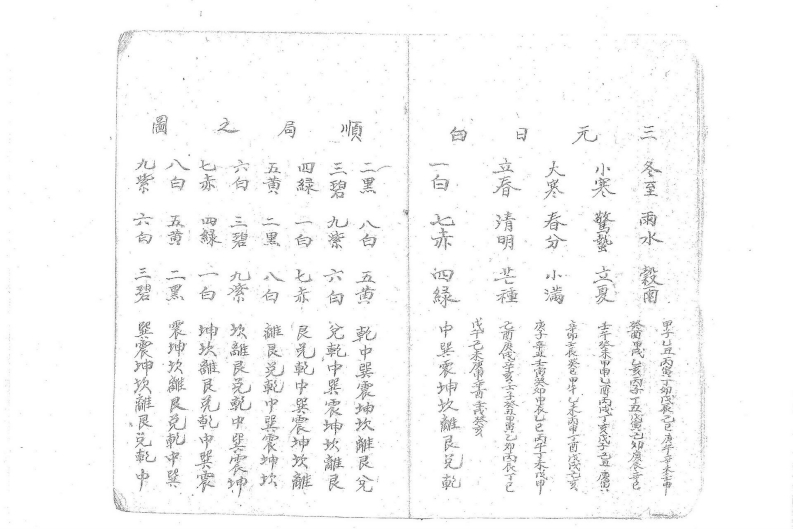 三元日白順局之圖
冬至 雨水 穀雨 甲子乙丑丙寅丁卯戊辰己巳庚午辛未壬申
小寒 驚蟄 立夏 癸酉甲戌乙亥丙子丁丑戊寅己卯庚辰辛巳
大寒 春分 小滿 壬午癸未甲申乙酉丙戌丁亥戊子己丑庚寅
立春 清明 芒種 辛卯壬辰癸巳甲午乙未丙申丁酉戊戌己亥
庚子辛丑壬寅癸卯甲辰乙巳丙午丁未戊申
己酉庚戌辛亥壬子癸丑甲寅乙卯丙辰丁巳
戊午己未庚申辛酉壬戌癸亥
一白 七赤 四綠 中巽震坤坎離艮兌乾
二黑 八白 五黃 乾中巽震坤坎離艮兌
三碧 九紫 六白 兌乾中巽震坤坎離艮
四綠 一白 七赤 艮兌乾中巽震坤坎離
五黃 二黑 八白 離艮兌乾中巽震坤坎
六白 三碧 九紫 坎離艮兌乾中巽震坤
七赤 四綠 一白 坤坎離艮兌乾中巽震
八白 五黃 二黑 震坤坎離艮兌乾中巽
九紫 六白 三碧 巽震坤坎離艮兌乾中